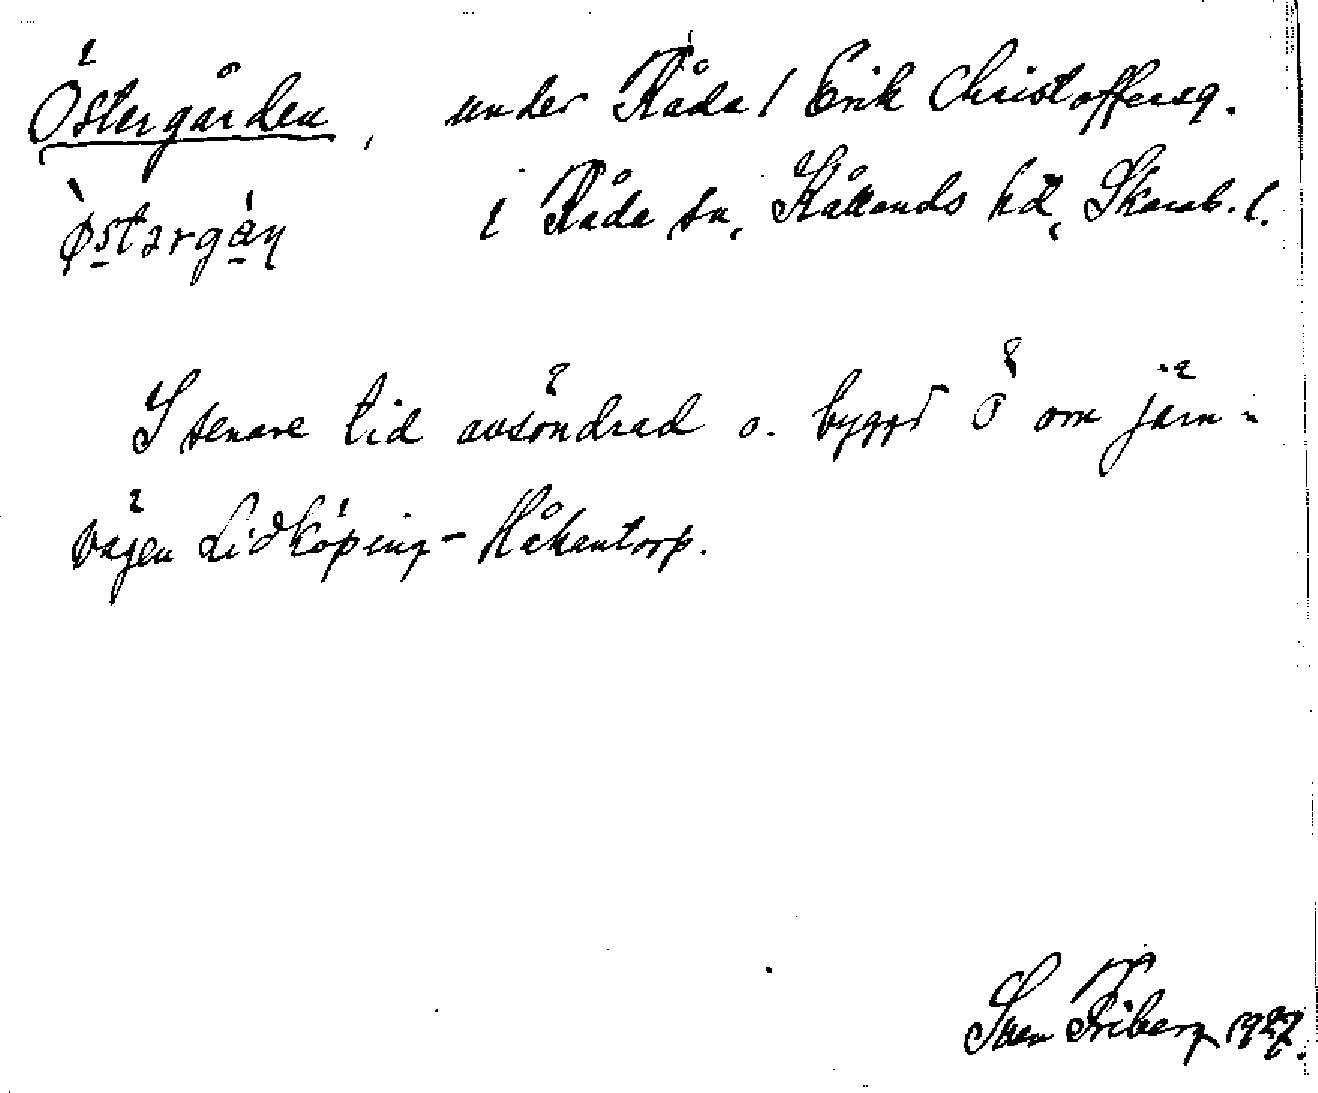 Östergården, under Råda 1 Erik Christoffersg.
Östərgán i Råda sn, Kållands hd, Skarab. l.
I senare tid avsöndrad o. byggd Ö om järn-
vägen Lidköping-Håkantorp.
Sven Friberg 1927.